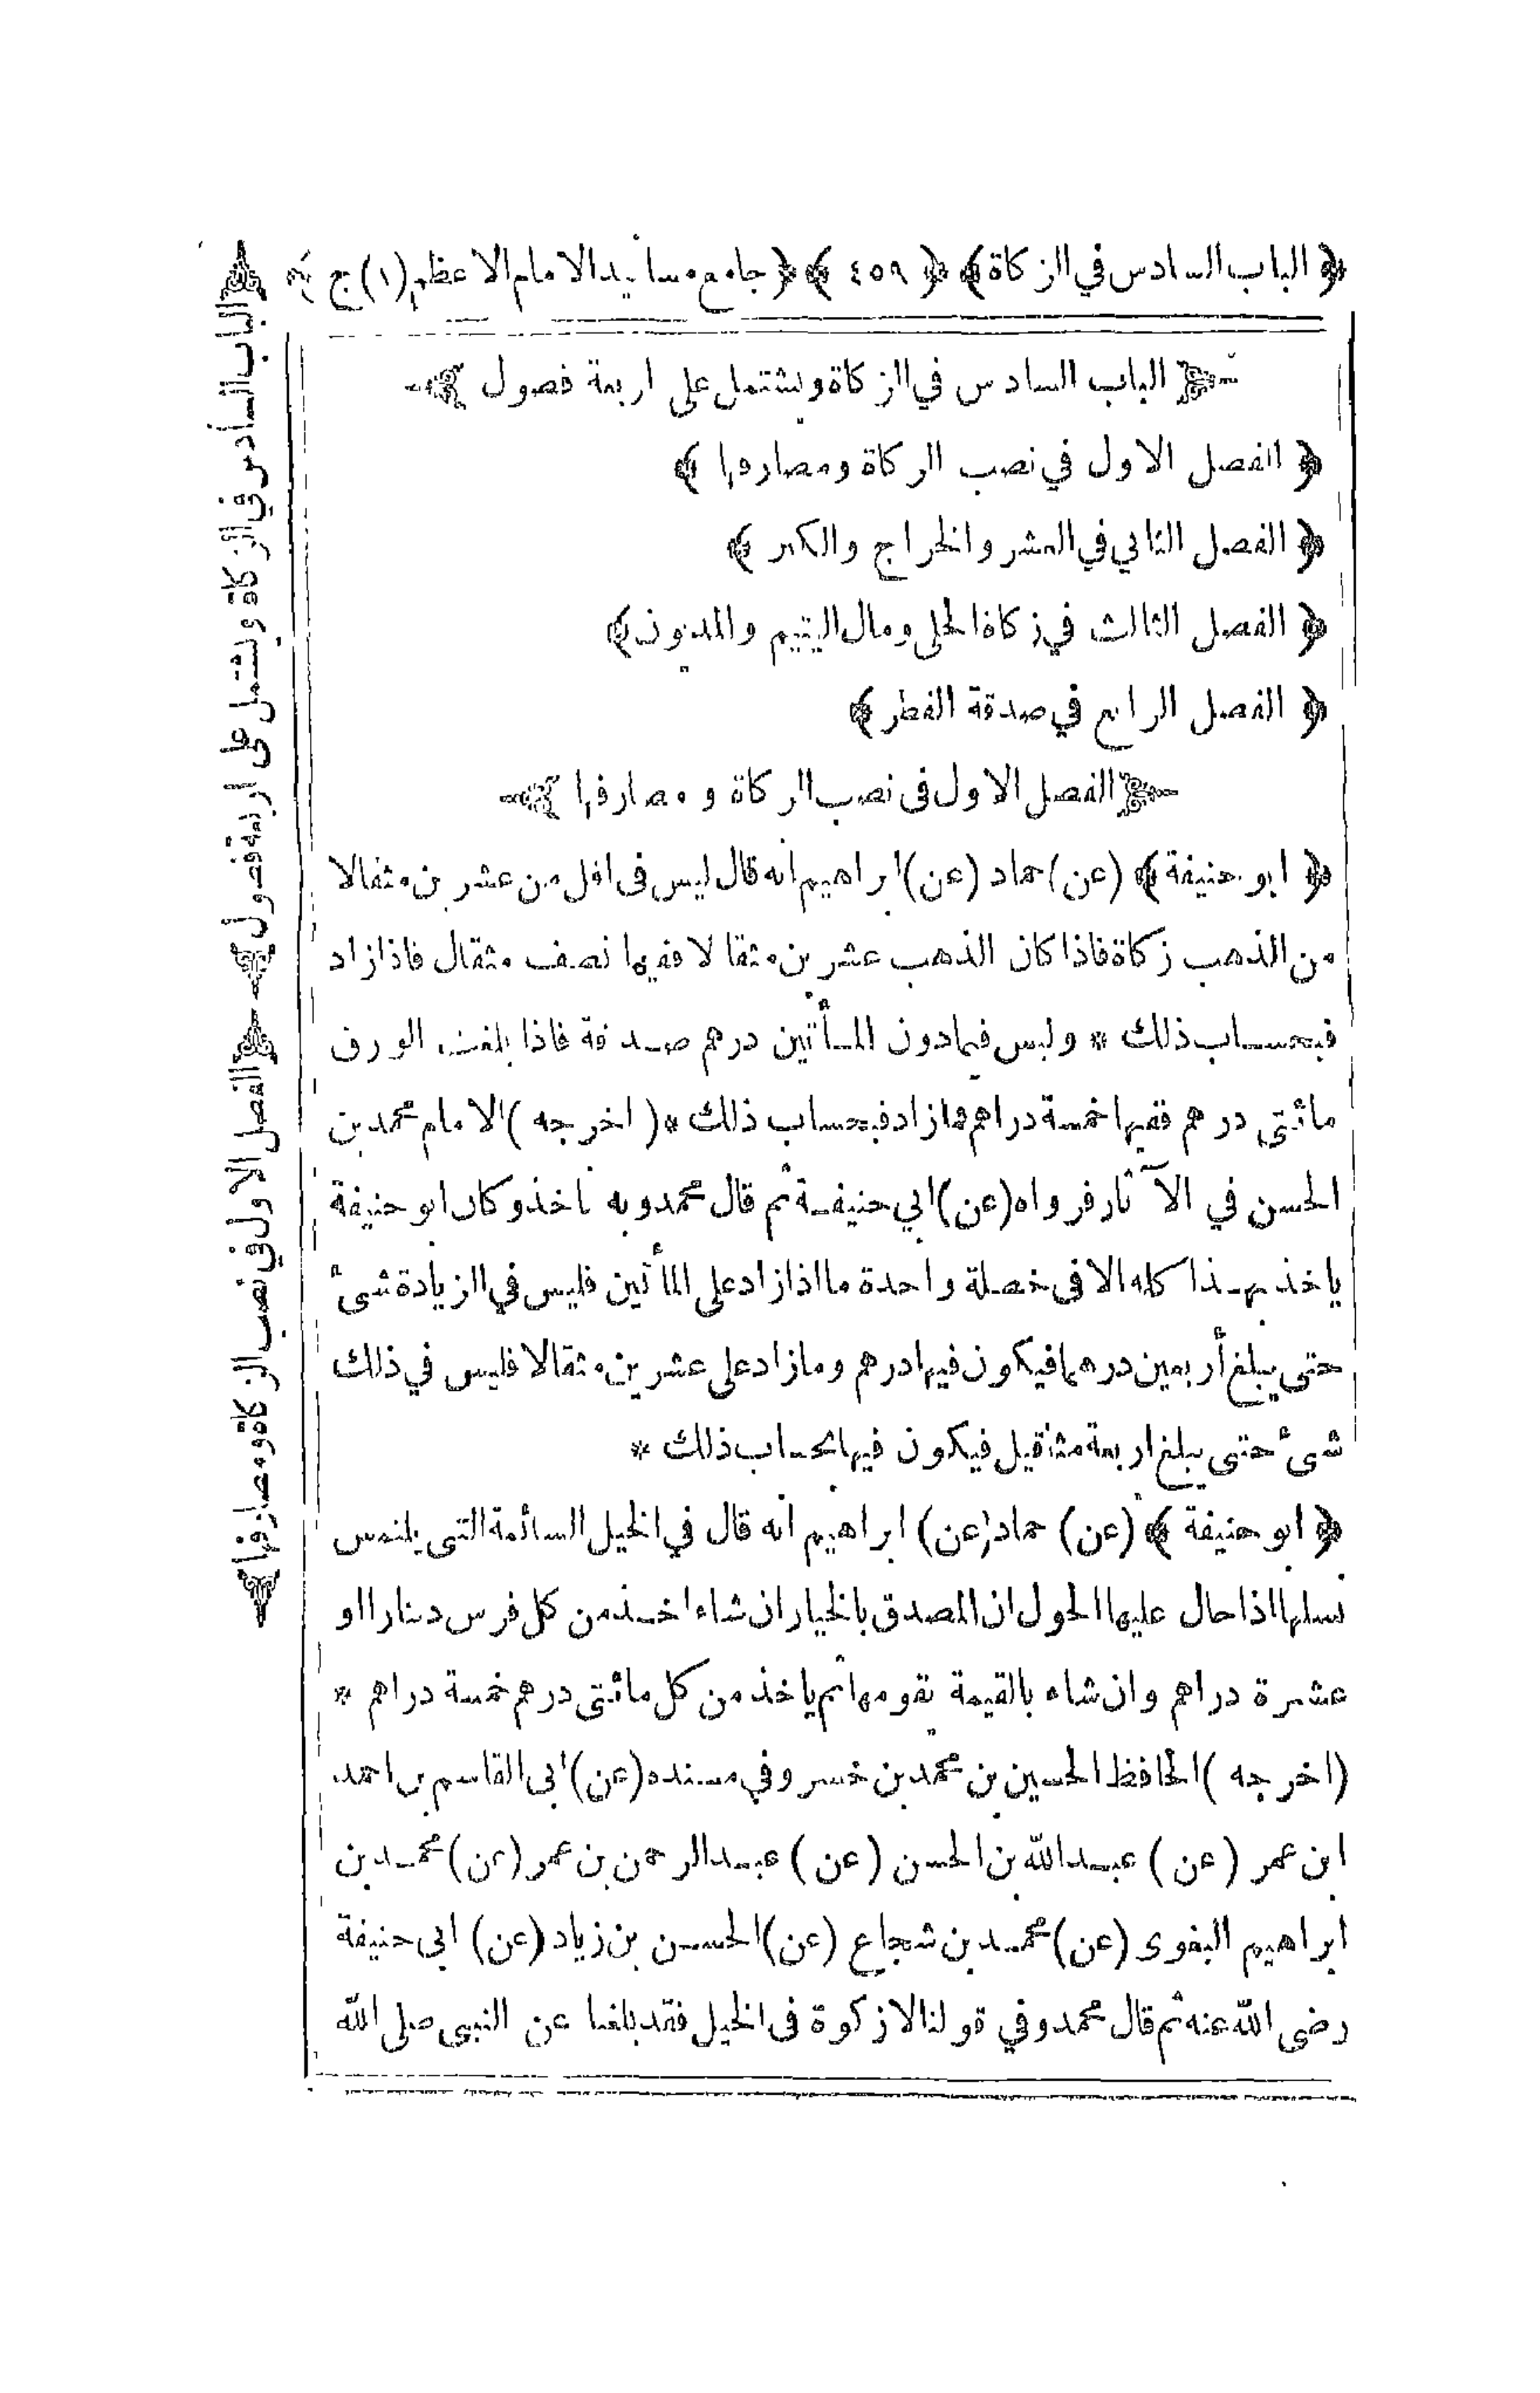 ﴿ الباب السادس في الزكاة ﴾ ﴿ ٤٥٩ ﴾ ﴿ جامع مسانيد الامام الاعظم (١) ج ﴾
الباب السادس في الزكاة ويشتمل على اربعة فصول
﴿ الفصل الاول في نصب الزكاة ومصارفها ﴾
﴿ الفصل الثاني في العشر والخراج والكنز ﴾
﴿ الفصل الثالث في زكاة الحلى ومال اليتيم والمديون ﴾
﴿ الفصل الرابع في صدقة الفطر ﴾
الفصل الاول فى نصب الزكاة و مصارفها
﴿ ابو حنيفة ﴾ (عن) حماد (عن) ابراهيم انه قال ليس فى اقل من عشرين مثقالا
من الذهب زكاة فاذا كان الذهب عشرين مثقالا ففيها نصف مثقال فاذا زاد
فبحساب ذلك * وليس فيمادون المأتين درهم صدقة فاذا بلغت الورق
مائتى درهم ففيها خمسة دراهم فمازاد فبحساب ذلك * (اخرجه) الامام محمد بن
الحسن في الآثار فرواه (عن) ابي حنيفة ثم قال محمد وبه ناخذ وكان ابو حنيفة
ياخذ بهذا كله الا فى خصلة واحدة ما اذا زاد على المأتين فليس في الزيادة شئ
حتى يبلغ أربعين درهما فيكون فيها درهم وما زاد على عشرين مثقالا فليس في ذلك
شئ حتى يبلغ اربعة مثاقيل فيكون فيها بحساب ذلك *
﴿ ابو حنيفة ﴾ (عن) حماد (عن) ابراهيم انه قال في الخيل السائمة التى يلتمس
نسلها اذا حال عليها الحول ان المصدق بالخيار ان شاء اخذ من كل فرس دينارا او
عشرة دراهم وان شاء بالقيمة يقومها ثم ياخذ من كل مائتى درهم خمسة دراهم *
(اخرجه) الحافظ الحسين بن محمد بن خسرو في مسنده (عن) ابى القاسم بن احمد
ابن عمر (عن) عبد الله بن الحسن (عن) عبد الرحمن بن عمر (عن) محمد بن
ابراهيم البغوى (عن) محمد بن شجاع (عن) الحسن بن زياد (عن) ابى حنيفة
رضى الله عنه ثم قال محمد وفي قولنا لا زكوة فى الخيل فقد بلغنا عن النبى صلى الله
الباب السادس في الزكاة ويشتمل على اربعة فصول الفصل الاول في نصب الزكاة ومصارفها